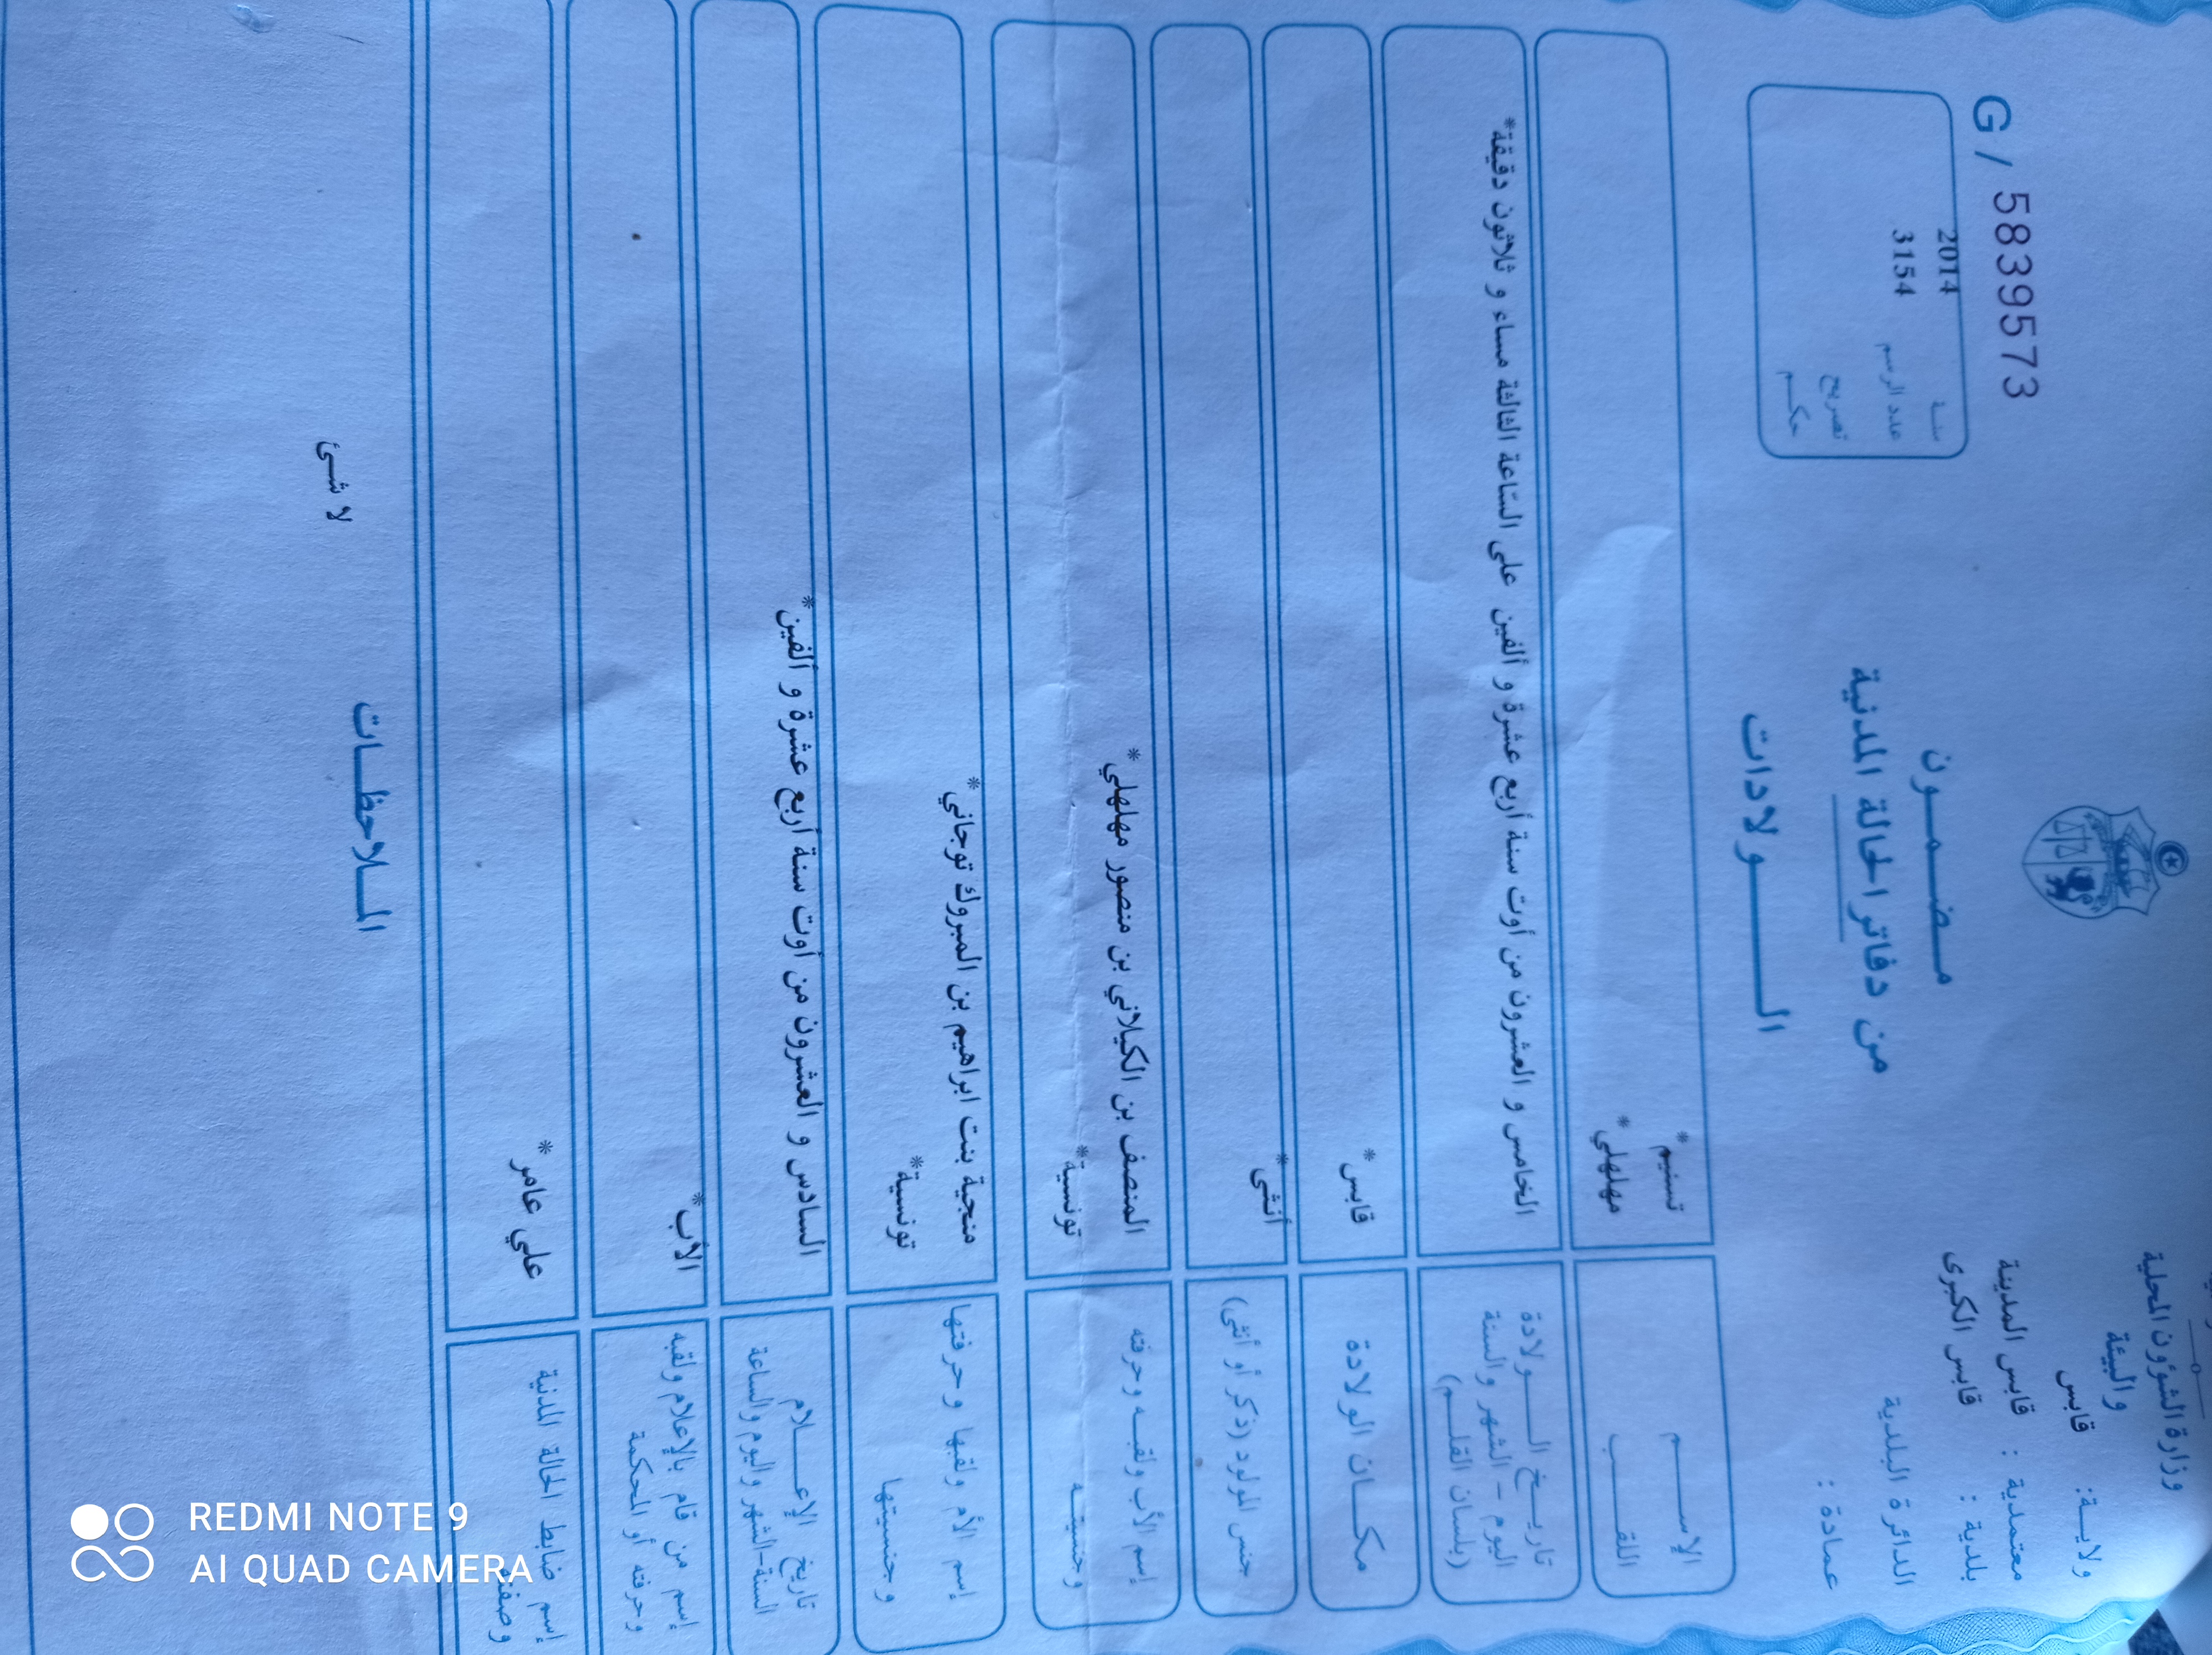 وزارة الشؤون المحلية
والبيئة
ولايــة: قابس
معتمدية : قابس المدينة
بلدية : قابس الكبرى
الدائرة البلدية
عمادة :
G / 5839573
سنة 2014
عدد الرسم 3154
تصريح
حكم
مضمون
من دفاتر الحالة المدنية
الولادات
الإسم تسنيم*
اللقب مهلهلي*
تاريخ الولادة
اليوم – الشهر والسنة
(بلسان القلم)
الخامس و العشرون من أوت سنة أربع عشرة و ألفين على الساعة الثالثة مساء و ثلاثون دقيقة*
مكان الولادة قابس*
جنس المولود (ذكر أو أنثى) أنثى*
إسم الأب ولقبه وحرفته المنصف بن الكيلاني بن منصور مهلهلي*
وجنسيته تونسية*
إسم الأم ولقبها وحرفتها منجية بنت ابراهيم بن المبروك توجاني*
وجنسيتها تونسية*
تاريخ الإعلام
السنة-الشهر واليوم والساعة
السادس و العشرون من أوت سنة أربع عشرة و ألفين*
إسم من قام بالإعلام ولقبه
وحرفته أو المحكمة
الأب*
إسم ضابط الحالة المدنية
وصفته
علي عامر*
الملاحظات
لا شئ
REDMI NOTE 9
AI QUAD CAMERA